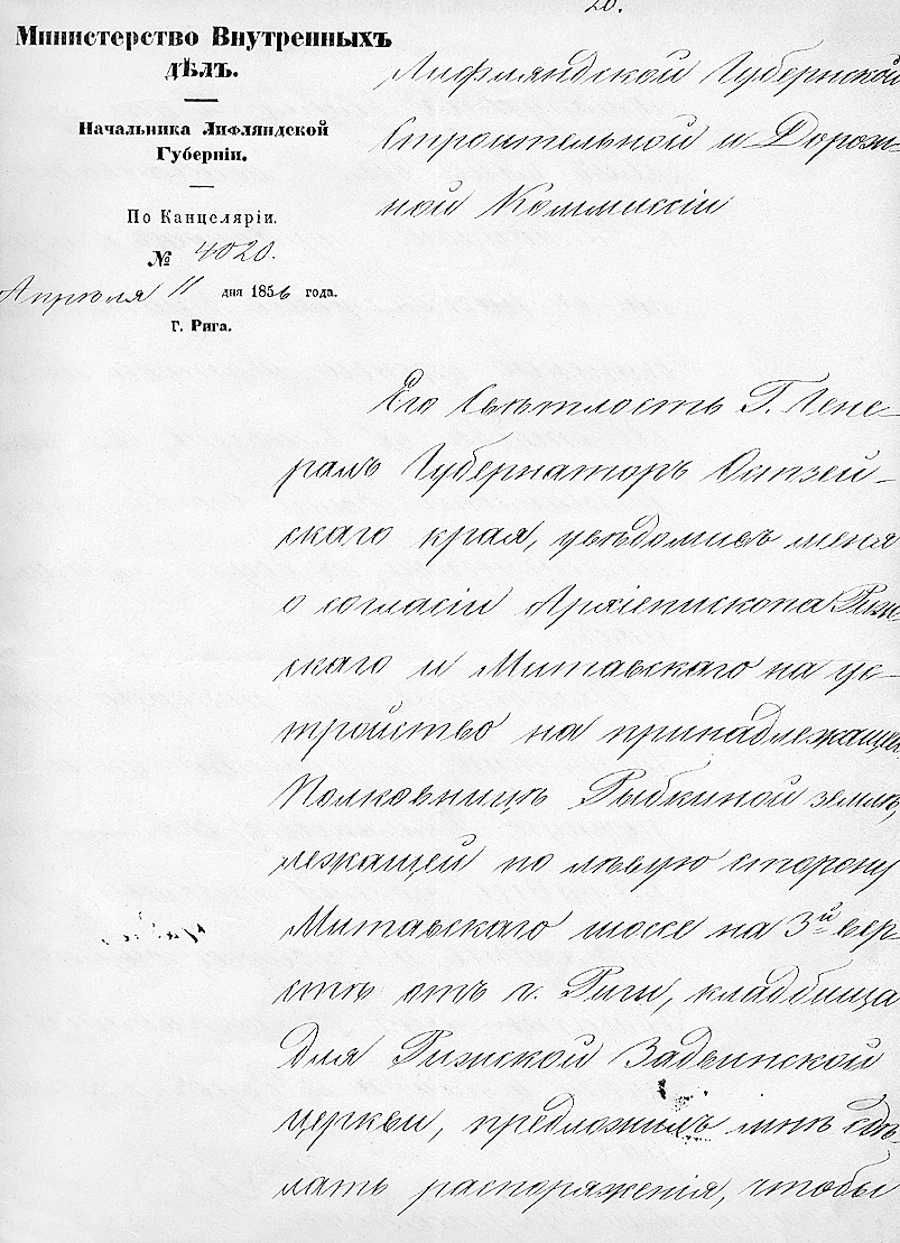 20.
Министерство Внутреннихъ
дѣлъ.
Начальника Лифляндской
Губерніи.
По Канцеляріи.
№ 4020.
Апрѣля 11 дня 1856 года.
Г. Рига.
Лифляндской Губернской
Строительной и Дорож-
ной Коммиссіи
Его Свѣтлость Г. Гене-
ралъ Губернаторъ Остзей-
скаго края, увѣдомивъ меня
о согласіи Архіепископа Риж-
скаго и Митавскаго на ус-
тройство на принадлежащей
Полковницѣ Рыбкиной землѣ,
лежащей по лѣвую сторону
Митавскаго шоссе на 3й вер-
стѣ отъ г. Риги, кладбища
для Рижской Задвинской
церкви, предложилъ мнѣ сдѣ-
лать распоряженія, чтобы